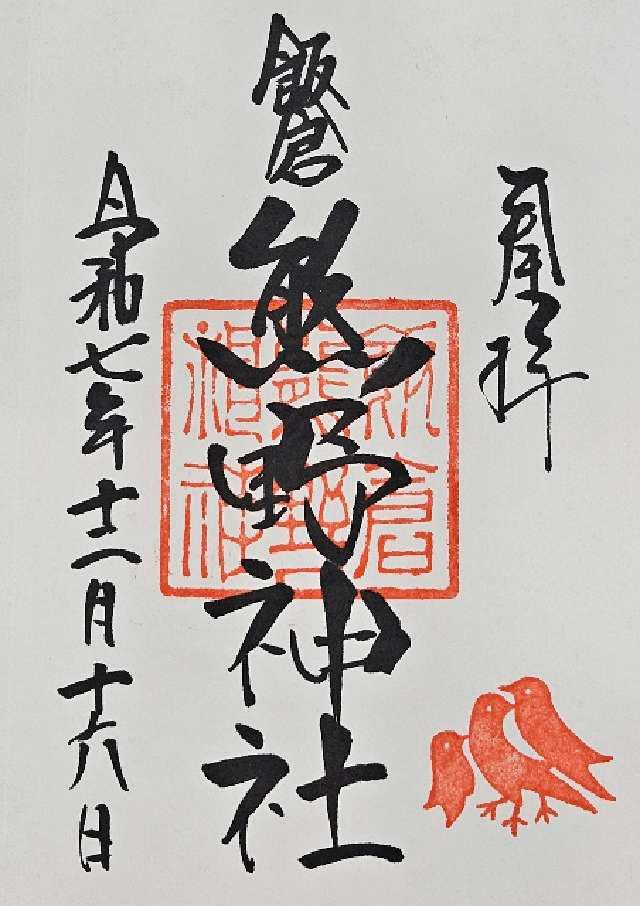 奉拝
飯倉
熊野神社
飯倉
熊野
神社
令和七年十二月十六日